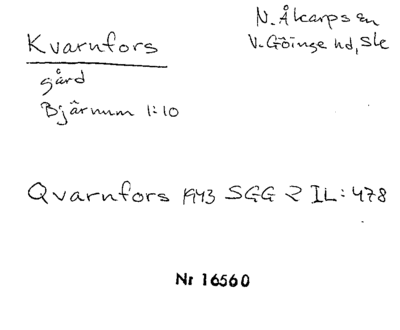 N. Åkarps sn
V. Göinge hd, Sk
Kvarnfors
gård
Bjärnum 1:10
Qvarnfors 1943 SGG 2 IL: 478
Nr 16560